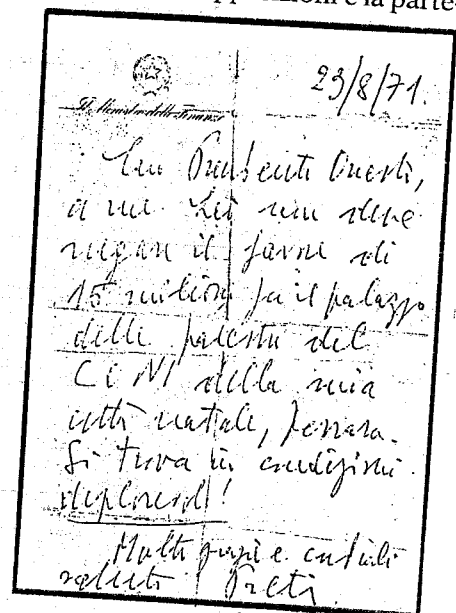 e la parte-
23/8/71.
Il Ministro delle Finanze
Caro Presidente Onesti,
a me Lei non deve
negare il favore di
15 milioni per il palazzo
delle palestre del
CONI della mia
città natale, Ferrara.
Si trova in condizioni
deplorevoli!
Molte grazie e cordiali
saluti Preti.